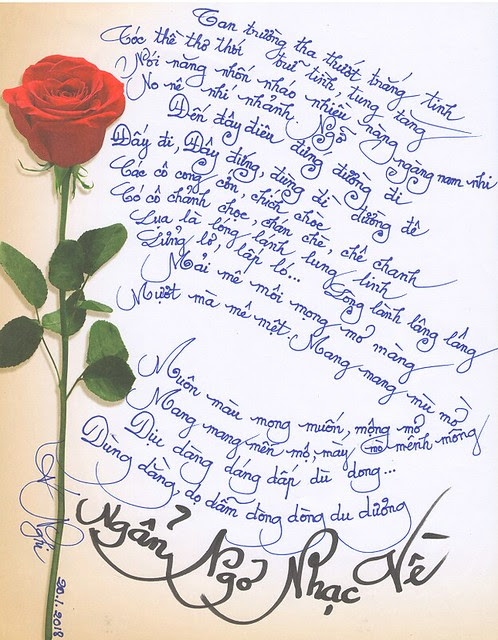 Tan trường tha thướt trắng tinh
Tóc thề thơ thới trữ tình, tung tăng
Nói năng nhốn nháo nhiều nàng
No nê nhí nhảnh. Ngỡ ngàng nam nhi
Đến đây điêu đứng đường đi
Đấy đi, Đây đứng, dừng đi đường đê
Các cô cong cớn, chích chòe
Có cô chảnh chọe, chán chê, chề chanh
Lụa là lóng lánh lung linh
Lửng lơ, lấp ló... Lòng lành lâng lâng
Mải mê môi mọng mơ màng
Mượt mà mê mệt. Mang mang mù mờ
Muôn màu mong muốn, mộng mơ
Mang mang mến mộ, mày mò mênh mông
Dịu dàng dáng dấp dù dong...
Dùng dằng, dọ dẫm dòng dòng du dương
Ngẩn Ngơ Nhạc Vè
Nghi
20.1.2018